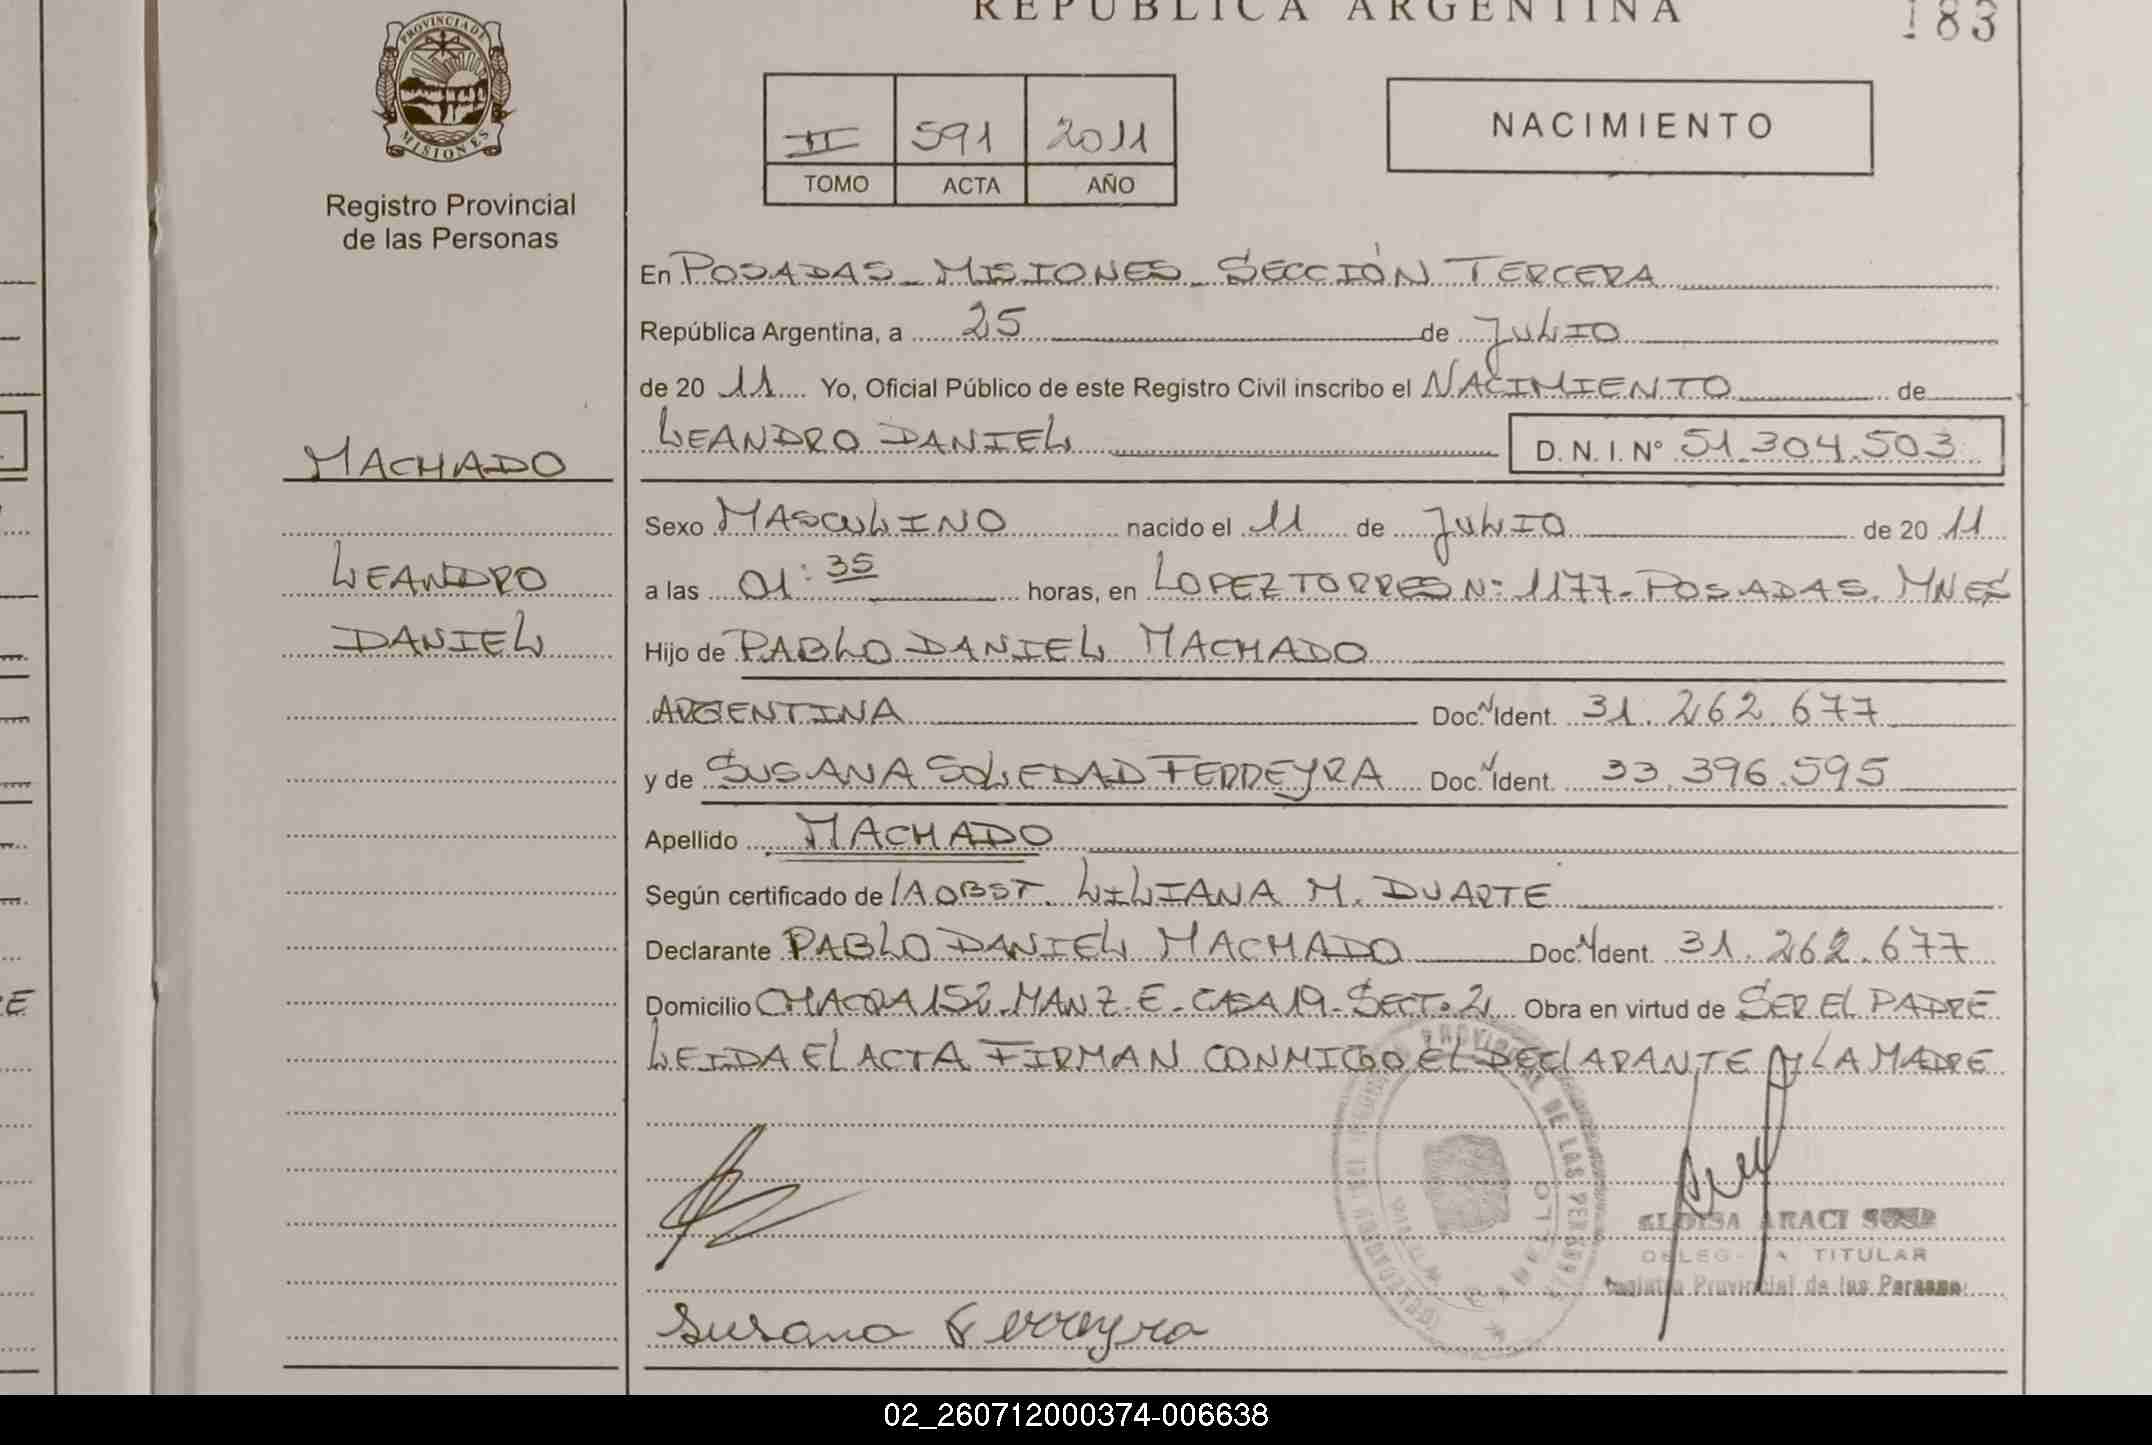 REPUBLICA ARGENTINA
183
PROVINCIA DE
MISIONES
Registro Provincial
de las Personas
II 591 2011
TOMO ACTA AÑO
NACIMIENTO
En POSADAS - MISIONES - SECCIÓN TERCERA
República Argentina, a 25 de JULIO
de 20 11 Yo, Oficial Público de este Registro Civil inscribo el NACIMIENTO de
LEANDRO DANIEL D. N. I. Nº 51.304.503
MACHADO
LEANDRO
DANIEL
Sexo MASCULINO nacido el 11 de JULIO de 20 11
a las 01:35 horas, en LOPEZ TORRES Nº 1177 - POSADAS. MNES
Hijo de PABLO DANIEL MACHADO
ARGENTINA Doc. N Ident. 31.262.677
y de SUSANA SOLEDAD FERREYRA Doc. N Ident. 33.396.595
Apellido MACHADO
Según certificado de LA OBST. LILIANA M. DUARTE
Declarante PABLO DANIEL MACHADO Doc. N Ident. 31.262.677
Domicilio CHACRA 152 - MANZ. E - CASA 19 - SECT. 2 Obra en virtud de SER EL PADRE
LEIDA EL ACTA FIRMAN CONMIGO EL DECLARANTE Y LA MADRE
PROVINCIAL DE LAS PERSONAS
ARACI
TITULAR
Registro Provincial de las Personas
Susana Ferreyra
E
02_260712000374-006638